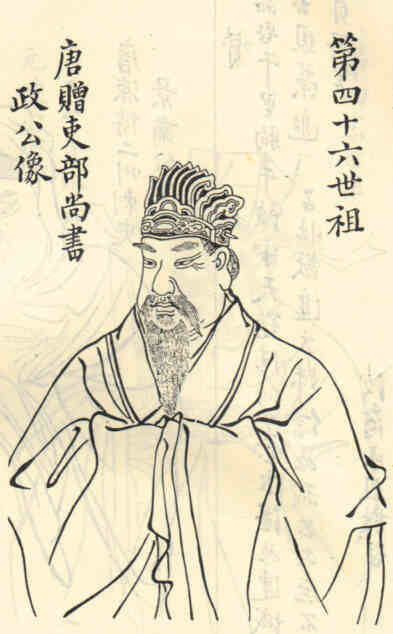 第四十六世祖
唐贈吏部尚書
政公像